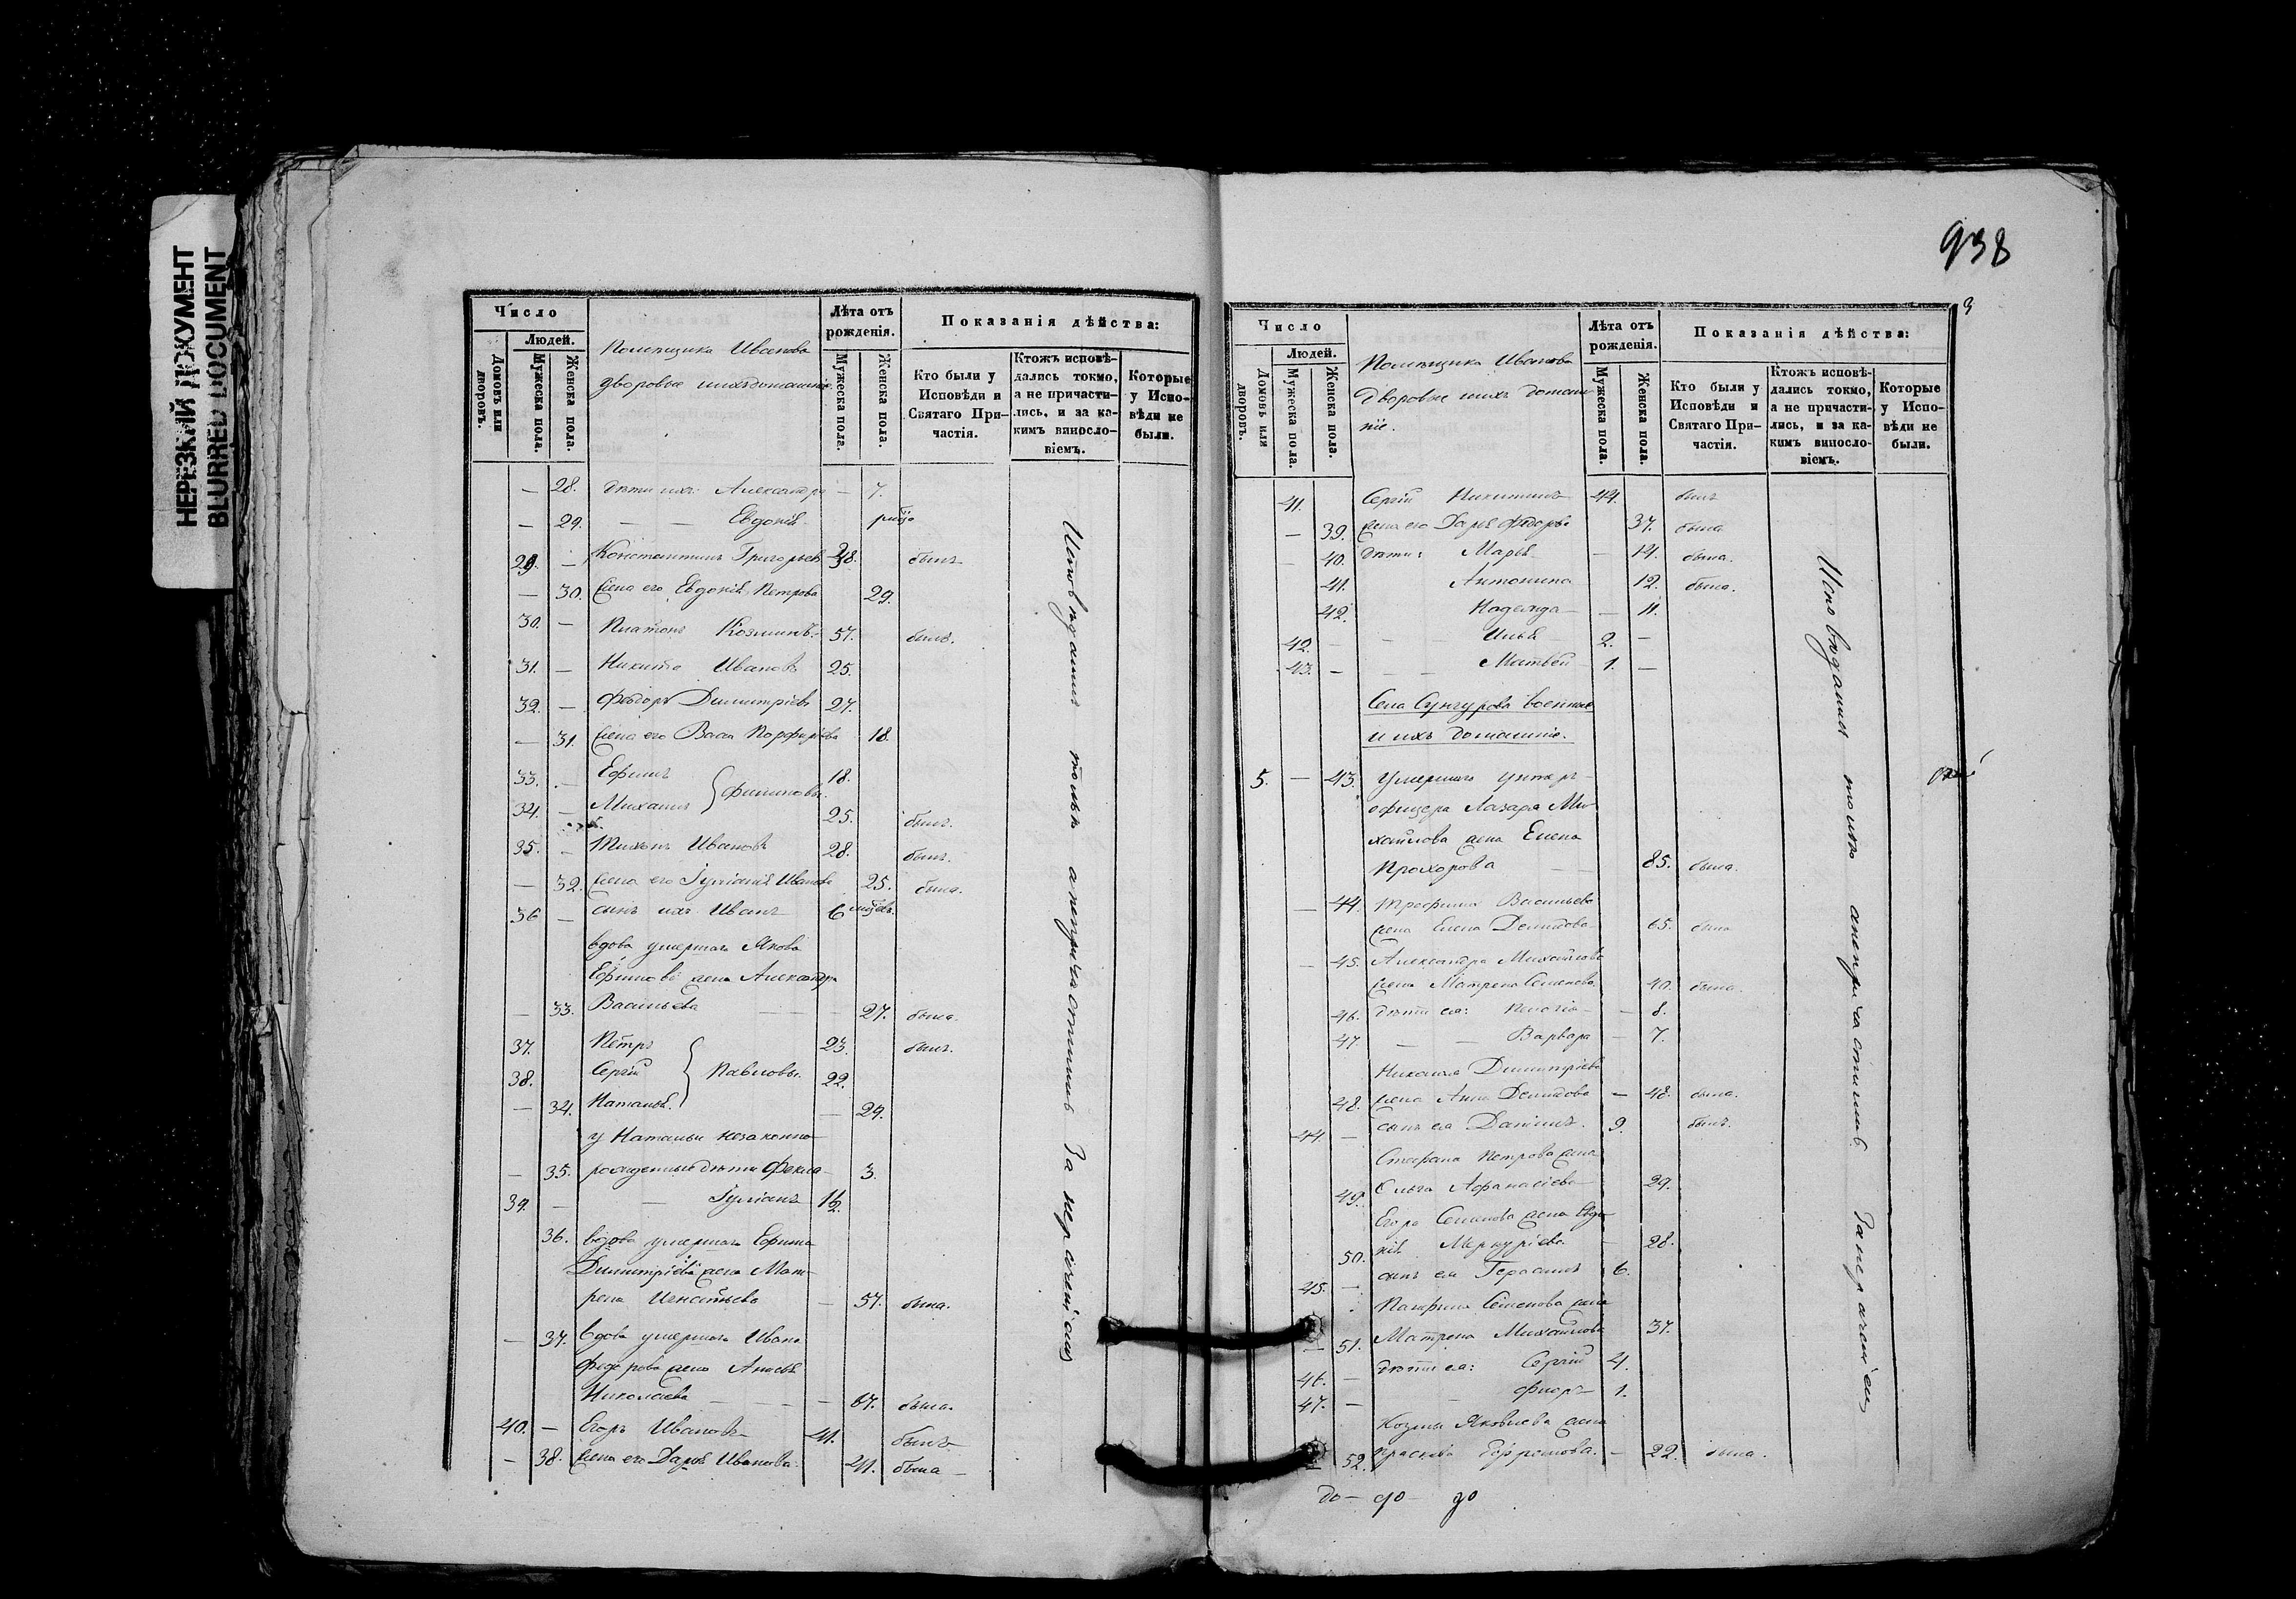 НЕРЕЗКИЙ ДОКУМЕНТ
BLURRED DOCUMENT
938
3
Число
Людей.
Домовъ или дворовъ.
Мужеска пола.
Женска пола.
Помѣщика Иванова
дворовые и ихъ домашніе
Лѣта отъ рожденія.
Мужеска пола.
Женска пола.
Показанія дѣйства:
Кто были у Исповѣди и Святаго Причастія.
Ктожъ исповѣдались токмо, а не причастились, и за какимъ винословіемъ.
Которые у Исповѣди не были.
— 28. дѣти ихъ: Александра — 7.
— 29. — — Евдокія
29. — Константинъ Григорьевъ 38. былъ
— 30. жена его Евдокія Петрова 29.
30. — Платонъ Козминъ 57. былъ.
31. — Никита Ивановъ 25.
32. — Ѳедоръ Димитріевъ 27.
— 31. жена его Васса Порфирьева 18.
33. — Ефимъ 18.
34. — Михаилъ } Филиповы. 25. былъ.
35. — Тихонъ Ивановъ 28. былъ.
— 32. жена его Іуліанія Иванова 25. была.
36 — сынъ ихъ Иванъ 6 мѣсяцевъ.
вдова умершаго Якова
Ефимова жена Александра
— 33. Васильева — — 27. была.
37. Петръ 23. былъ.
38. Сергій } Павловы. 22.
— 34. Наталья. — 29.
у Натальи незаконно-
— 35. рожденные дѣти Фекла — 3.
39. — — Іуліанъ 1½.
36. вдова умершаго Ефима
Димитріева жена Мат-
рена Игнатьева — 57. была.
— 37. вдова умершаго Ивана
Федорова жена Анисья
Николаева — — — 67. была.
40. — Егоръ Ивановъ 41. былъ
— 38. жена его Дарья Иванова. 41. была —
Исповѣдались только а непричастились за нераченіемъ
Число
Людей.
Домовъ или дворовъ.
Мужеска пола.
Женска пола.
Помѣщика Иванова
дворовые и ихъ домаш-
ніе.
Лѣта отъ рожденія.
Мужеска пола.
Женска пола.
Показанія дѣйства:
Кто были у Исповѣди и Святаго Причастія.
Ктожъ исповѣдались токмо, а не причастились, и за какимъ винословіемъ.
Которые у Исповѣди не были.
41. Сергій Никитинъ 44. былъ
— 39. жена его Дарья Федорова 37. была
— 40. дѣти: Марья — 14. была.
41. Антонина 12. была.
42. Надежда — — 11.
42. — — — Илья 2. —
43. — — — Матвей 1. —
Села Сунгурова военные
и ихъ домашніе.
5. — 43. Умершаго унтеръ-
офицера Лазаря Ми-
хайлова жена Елена
Прохорова — — 85. была.
— 44. Трофима Васильева
жена Елена Демидова 65. была
— 45. Александра Михайлова
жена Матрена Семенова 40. была.
46. дѣти ея: — 8.
47. — — Варвара — 7.
Михаила Димитріева
48. жена Анна Демидова — 48. была.
44. — сынъ ея Даніилъ. 9. былъ.
Стефана Петрова жена
49. Ольга Афанасіева 29.
Егора Семенова жена Евдо-
50. кія Меркуріева — 28.
45. — сынъ ея Герасимъ 6.
Панфила Семенова жена
— 51. Матрена Михайлова 37.
46. — дѣти ея: Сергій 4.
47. — — — Флоръ 1.
Козмы Яковлева жена
— 52. Праскева Ефремова. — 22. была.
Исповѣдались только а непричастились за нераченіемъ